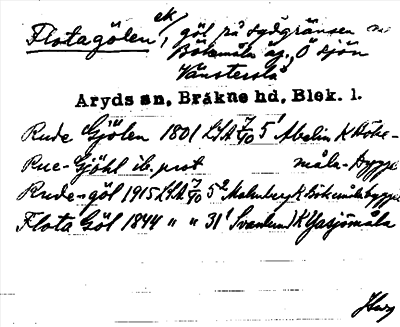 Flotagölen, ek, göl på sydgränsen
Bökemåla äg., Ö sjön
Vänstersla
Aryds sn, Bräkne hd, Blek. l.
Rude Gjölen 1801 LSA 5 Abelin K Böke-
Rue-Gjöhl ib. prot måla-bygge
Rude-göl 1915 LSA 5² Malmberg K Bökemålabygge
Flota Göl 1844 " " 31¹ Svanlund K Gasjömåla